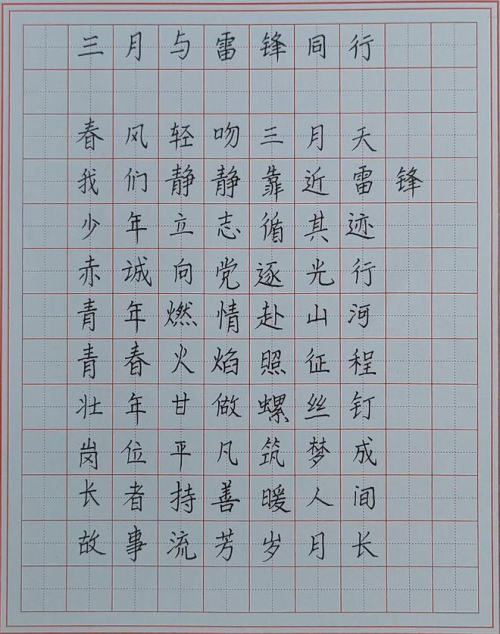 三月与雷锋同行
春风轻吻三月天
我们静静靠近雷锋
少年立志循其迹
赤诚向党逐光行
青年燃情赴山河
青春火焰照征程
壮年甘做螺丝钉
岗位平凡筑梦成
长者持善暖人间
故事流芳岁月长